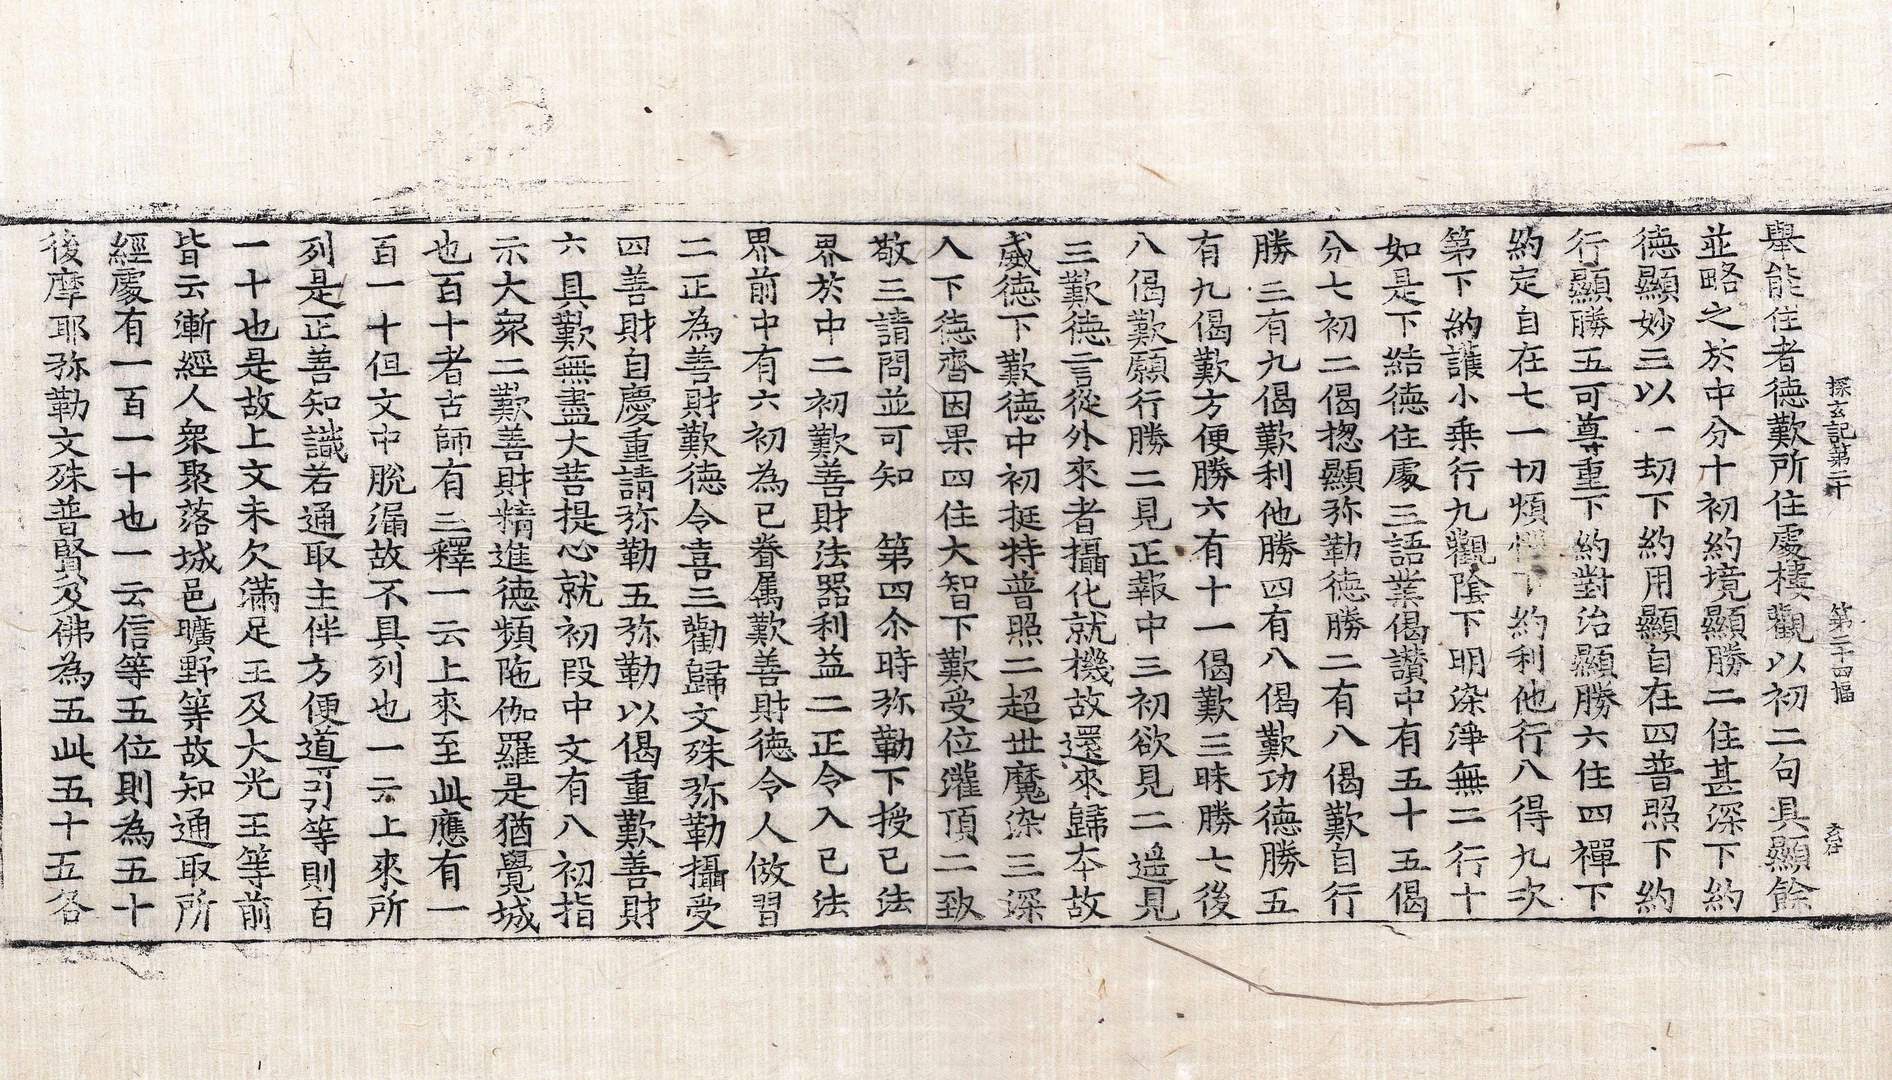 探玄記第二十　第二十四幅
舉能住者德歎所住處樓觀以初二句具顯餘
並略之於中分十初約境顯勝二住甚深下約
德顯妙三以一劫下約用顯自在四普照下約
行顯勝五可尊重下約對治顯勝六住四禪下
約定自在七一切煩惱下約利他行八得九次
第下約護小乘行九觀陰下明染淨無二行十
如是下結德住處三語業偈讚中有五十五偈
分七初二偈揔顯弥勒德勝二有八偈歎自行
勝三有九偈歎利他勝四有八偈歎功德勝五
有九偈歎方便勝六有十一偈歎三昧勝七後
八偈歎願行勝二見正報中三初欲見二遥見
三歎德言從外來者攝化就機故還來歸夲故
威德下歎德中初挺特普照二超世魔染三深
入下德齊因果四住大智下歎受位灌頂二致
敬三請問並可知　第四尒時弥勒下授已法
界於中二初歎善財法器利益二正令入已法
界前中有六初為已眷属歎善財德令人倣習
二正為善財歎德令喜三勸歸文殊弥勒攝受
四善財自慶重請弥勒五弥勒以偈重歎善財
六具歎無盡大菩提心就初段中文有八初指
示大衆二歎善財精進德頻陁伽羅是猶覺城
也百十者古師有三釋一云上來至此應有一
百一十但文中脫漏故不具列也一云上來所
列是正善知識若通取主伴方便道可等則百
一十也是故上文未欠滿足王及大光王等前
皆云漸經人衆聚落城邑曠野等故知通取所
經處有一百一十也一云信等五位則為五十
後摩耶弥勒文殊普賢及佛為五此五十五各